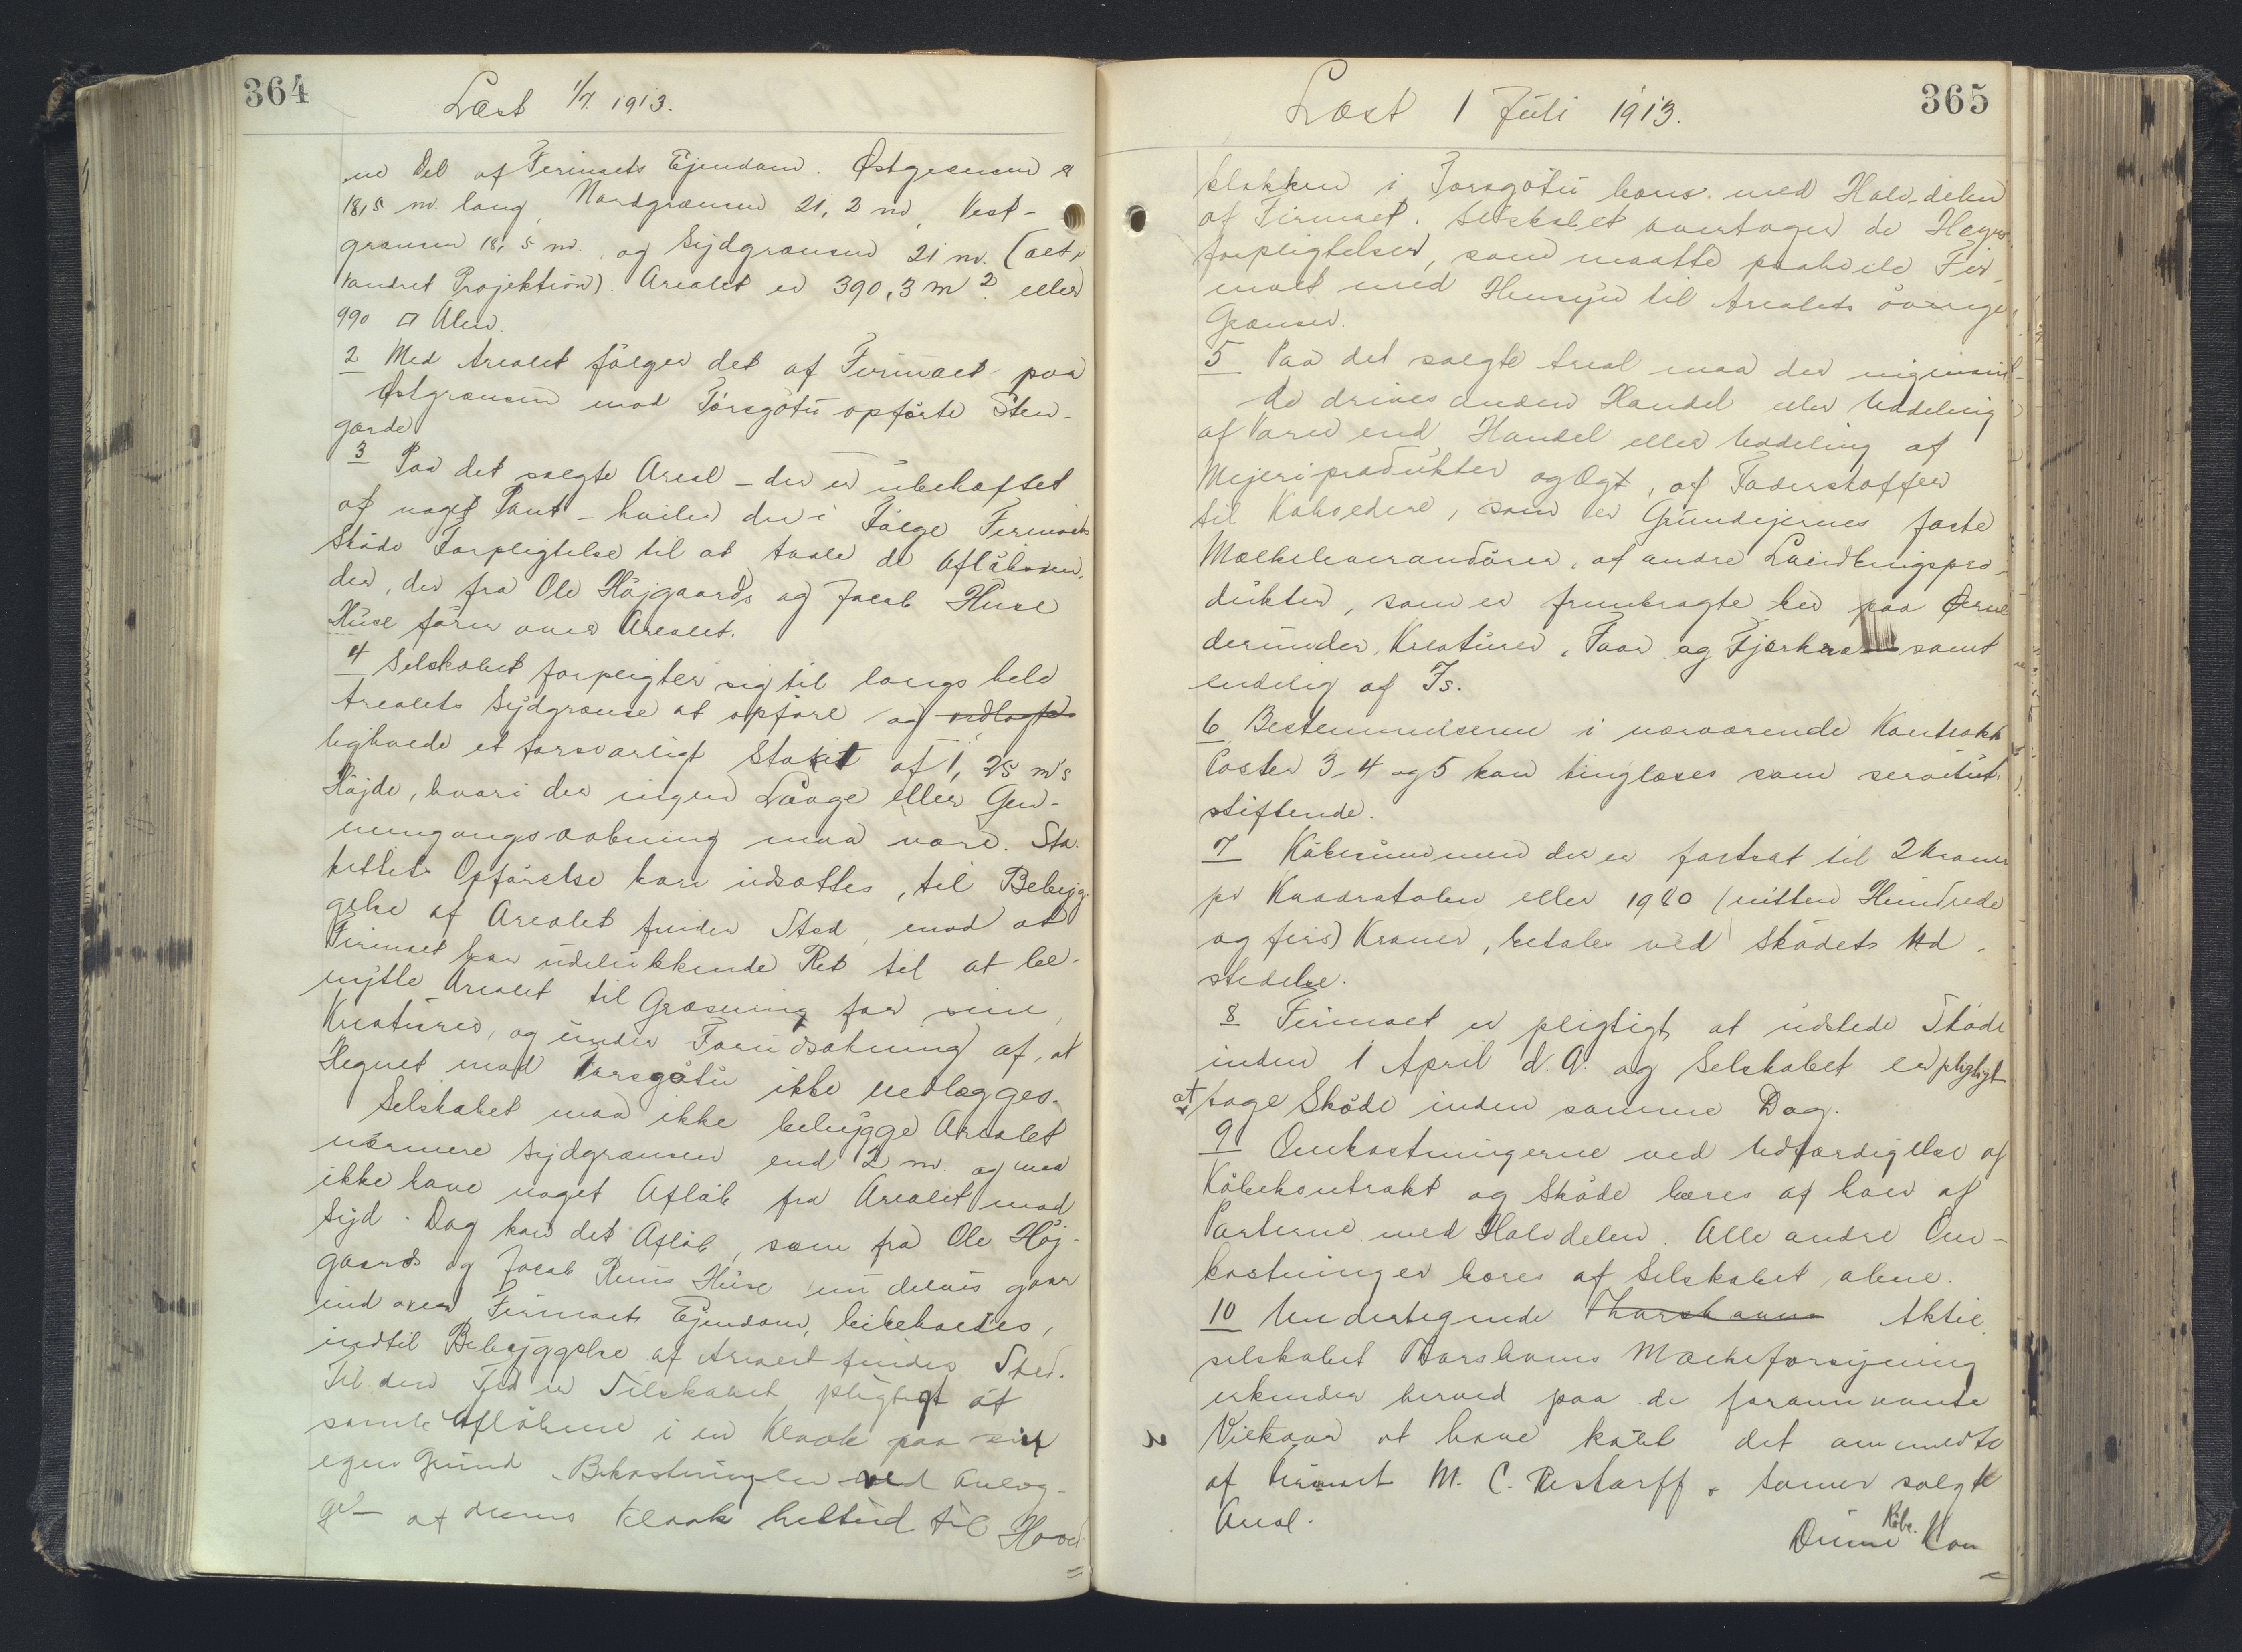 364
Læst 1/7. 1913.
en Del af Firmaets Ejendom. Østgrænsen er
18,5 m. lang, Nordgrænsen 21,2 m, Vest-
grænsen 18,5 m. og Sydgrænsen 21 m. (alt i
vandret Projektion). Arealet er 390,3 m². eller
990 □ Alen.
2 Med Arealet følger det af Firmaet paa
Østgrænsen mod Tórsgøtu opførte Sten-
gærde
3 Paa det solgte Areal – der er ubehæftet
af noget Pant – hviler der i Følge Firmaets
Skøde Forpligtelse til at taale de Afløbsren-
der, der fra Ole Højgaards og Jacob
Huse fører over Arealet.
4 Selskabet forpligter sig til langs hele
Arealets Sydgrænse at opføre og vedlige
ligholde et forsvarligt Stakit af 1,25 m's
Højde, hvori der ingen Laage eller Gen-
nemgangsaabning maa være. Sta-
kittets Opførelse kan udsættes, til Bebyg-
gelse af Arealet finder Sted, mod at
Firmaet har udelukkende Ret til at be-
nytte Arealet til Græsning for sine
Kreaturer, og under Forudsætning af, at
Hegnet mod Tórsgøtu ikke nedlægges.
Selskabet maa ikke bebygge Arealet
nærmere Sydgrænsen end 2 m. og maa
ikke have noget Afløb fra Arealet mod
Syd. Dog kan det Afløb, som fra Ole Høj-
gaards og Jacob Huse nu delvis gaar
ind over Firmaets Ejendom, bibeholdes,
indtil Bebyggelse af Arealet finder Sted.
Til den Tid er Selskabet pligtigt at
samle Afløbene i en Kloak paa sin
egen Grund. Bekostningen ved Anlæg-
get af denne Kloak heltud til Hoved
365
Læst 1 Juli 1913.
klokken i Torsgøtu bæres med Halvdelen
af Firmaet. Selskabet overtager de Hegns-
forpligtelser, som maatte paahvile Fir-
maet med Hensyn til Arealets øvrige
Grænser.
5 Paa det solgte Areal maa der ingensin-
de drives anden Handel eller Uddeling
af Varer end Handel eller Uddeling af
Mejeriprodukter og Æg, af Foderstoffer
til Køerne, som er Grundejernes faste
Mælkeleverandører, af andre Landbrugspro-
dukter, som er frembragte her paa Øerne
derunder, Kreaturer, Faar og Fjerkræ samt
endelig af Is.
6 Bestemmelserne i nærværende Kontrakts
Poster 3-4 og 5 kan tinglæses som servitut-
stiftende.
7 Købesummen der er fastsat til 2 Kroner
pr Kvadratalen eller 1980 (nitten Hundrede
og firs) Kroner, betales ved Skødets Ud-
stedelse.
8 Firmaet er pligtigt at udstede Skøde
inden 1 April d. A. og Selskabet er pligtigt
at tage Skøde inden samme Dag.
9 Omkostningerne ved Udfærdigelse af
Købekontrakt og Skøde bæres af hver af
Parterne med Halvdelen. Alle andre Om-
kostninger bæres af Selskabet alene.
10 Undertegnede Thorshavns Aktie
selskabet Thorshavns Mælkeforsyning
erkender herved paa de forannævnte
Vilkaar at have købt det ommeldte
af Firmaet M. C. Restorff & Sønner solgte
Areal.
Købe.
Denne Kon